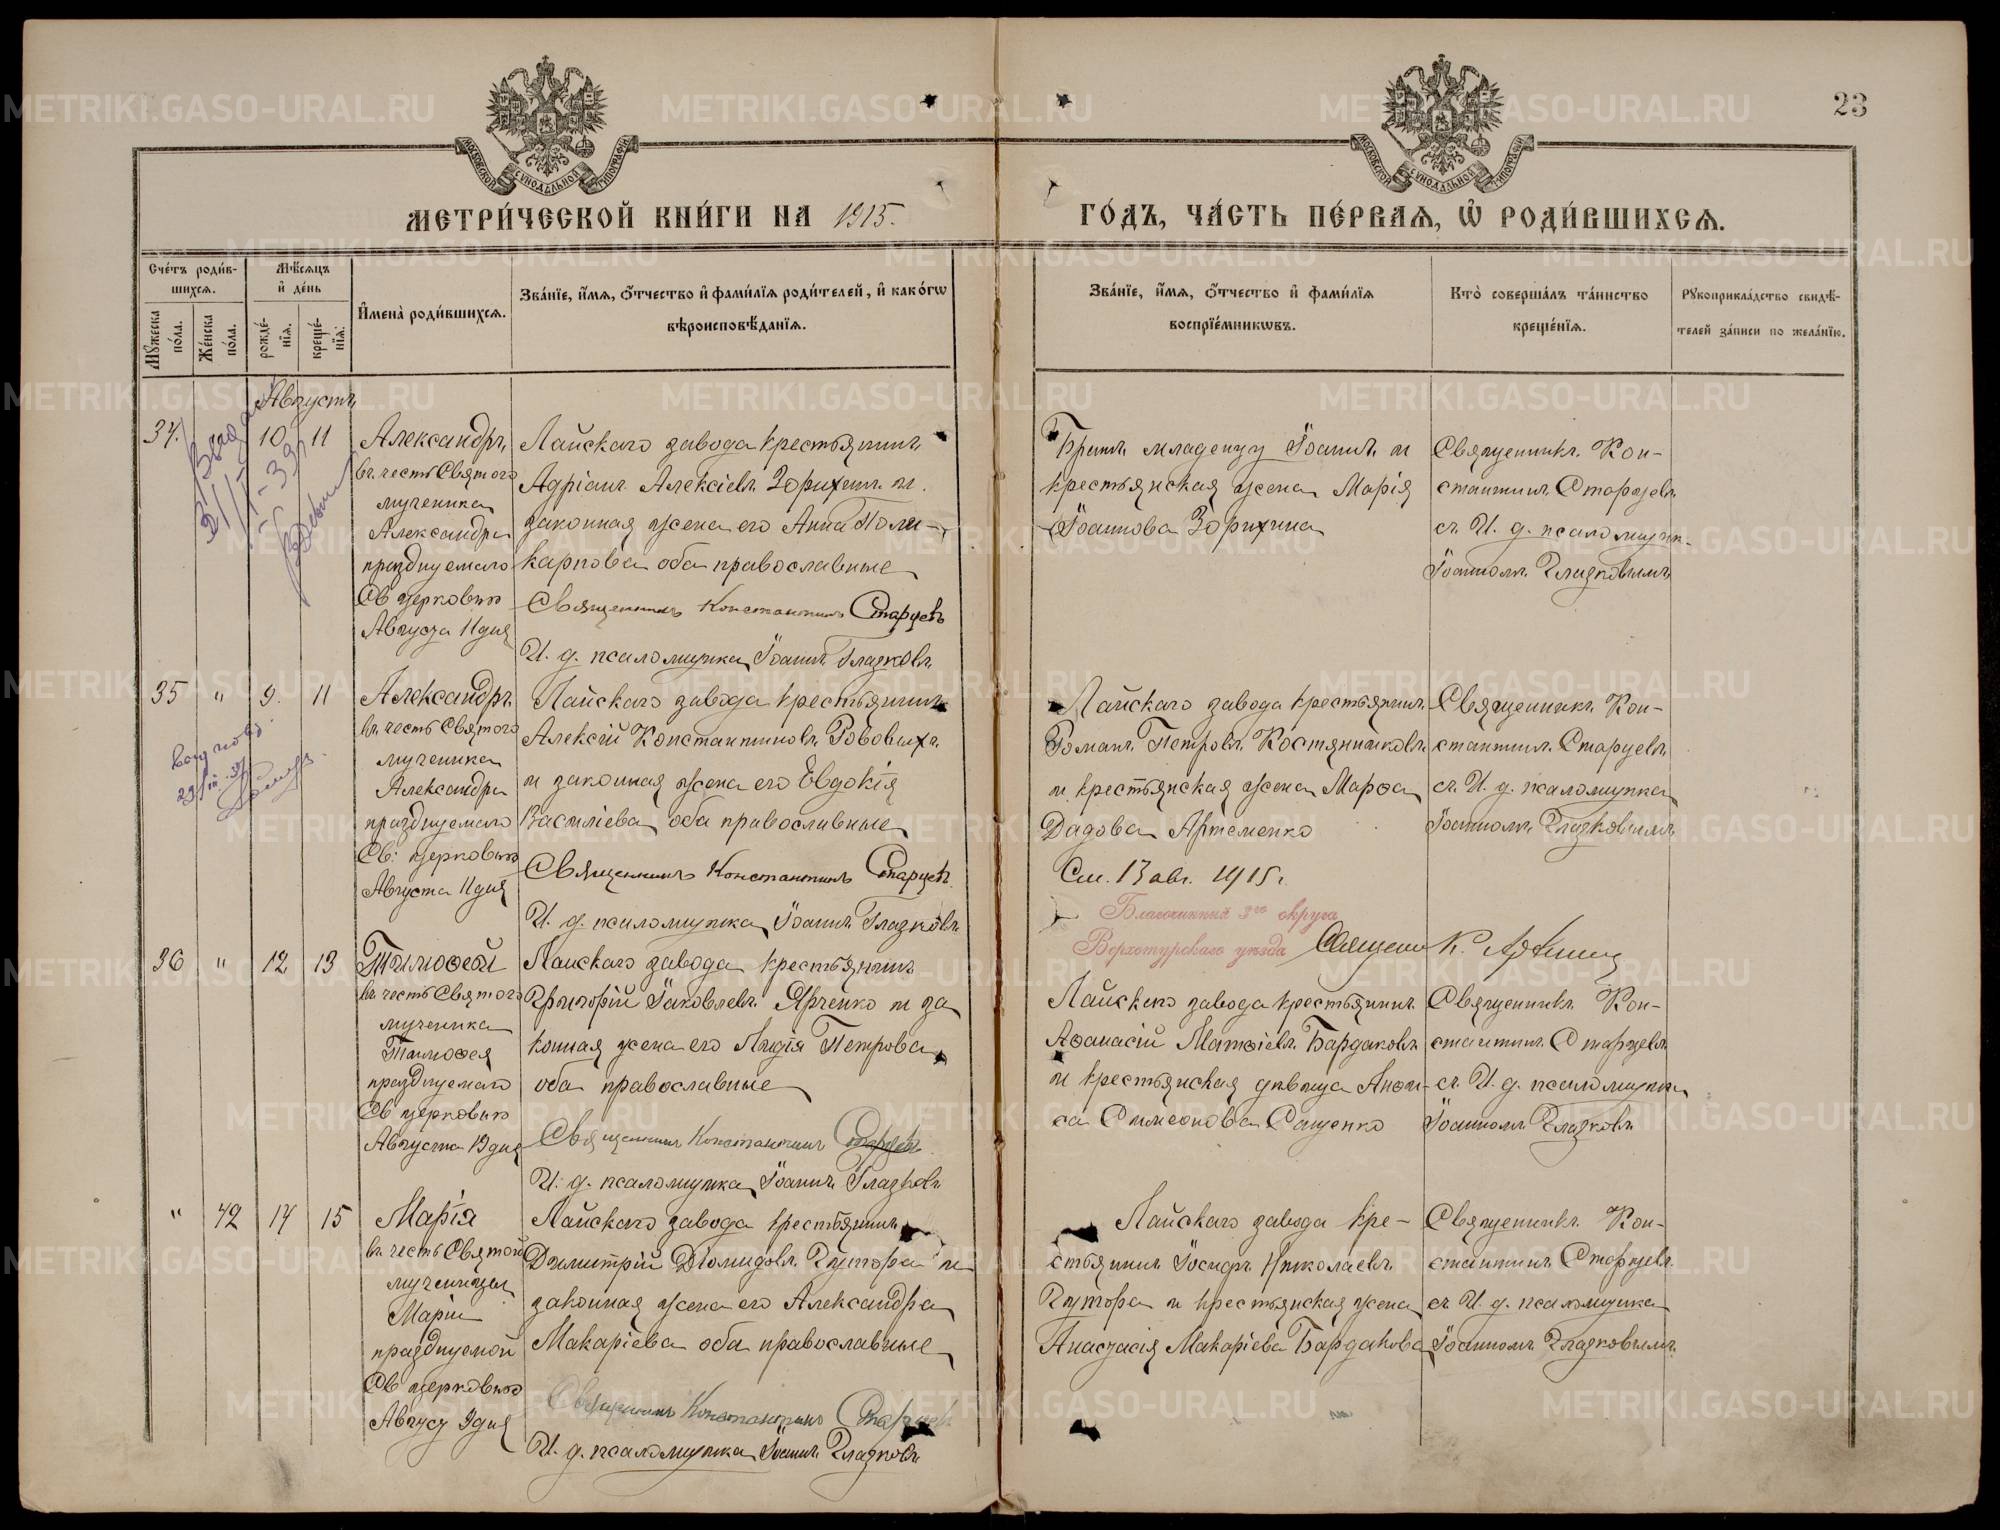 23
МОСКОВСКОЙ СѴНОДАЛЬНОЙ ТИПОГРАФІИ
МОСКОВСКОЙ СѴНОДАЛЬНОЙ ТИПОГРАФІИ
МЕТРИ́ЧЕСКОЙ КНИ́ГИ НА 1915.
ГО́ДЪ, ЧА́СТЬ ПЕ́РВАѦ, Ѡ РОДИ́ВШИХСѦ.
Сче́тъ роди́вшихсѧ.
Мꙋ́жеска по́ла.
Же́нска по́ла.
Мѣ́сѧцъ и де́нь
рожде́нїѧ.
креще́нїѧ.
И҆мена̀ роди́вшихсѧ.
Зва́нїе, и҆́мѧ, ѻ҆́тчество и҆ фами́лїѧ роди́телей, и҆ како́гѡ
вѣроисповѣ́данїѧ.
Зва́нїе, и҆́мѧ, ѻ҆́тчество и҆ фами́лїѧ
воспрїе́мникѡвъ.
Кто̀ соверша́лъ та́инство
креще́нїѧ.
Рꙋкоприкла́дство свидѣ́-
телей за́писи по жела́нїю.
Августъ
34. " 10 11
Александръ
въ честь Святого
мученика
Александра
празднуемаго
Св церковью
Августа 11 дня
Лайскаго завода крестьянинъ
Адріанъ Алексіевъ Зорихинъ и
законная жена его Анна Поли-
карпова оба православные
Священникъ Константинъ Старцевъ
И. д. псаломщика Іоаннъ Глазковъ
Братъ младенцу Іоаннъ и
крестьянская жена Марія
Іоаннова Зорихина
Священникъ Кон-
стантинъ Старцевъ
съ И. д. псаломщик-
Іоанномъ Глазковымъ
35 " 9. 11
Александръ
въ честь Святого
мученика
Александра
празднуемаго
Св: церковью
Августа 11 дня
Лайскаго завода крестьянинъ
Алексій Константиновъ Рововыхъ
и законная жена его Евдокія
Василіева оба православные
Священникъ Константинъ Старцевъ
И. д. псаломщика Іоаннъ Глазковъ
Лайскаго завода крестьянинъ
Романъ Петровъ Костяниковъ
и крестьянская жена Марѳа
Дадова Артеменко
См. 13 авг. 1915 г
Благочинный 3го округа
Верхотурскаго уѣзда
Священ К.
Священникъ Кон-
стантинъ Старцевъ
съ И. д. псаломщика
Іоанномъ Глазковымъ
36 " 12 13
Тимоѳей
въ честь Святого
мученика
Тимоѳея
празднуемаго
Св церковью
Августа 13 дня
Лайскаго завода крестьянинъ
Григорій Іаковлевъ Ярченко и за
конная жена его Лидія Петрова
оба православные
Священникъ Константинъ Старцевъ
И: д. псаломщика Іоаннъ Глазковъ
Лайскаго завода крестьянинъ
Аѳанасій Матѳіевъ Бардаковъ
и крестьянская дѣвица Анѳи-
са Симеонова Саченко
Священникъ Кон-
стантинъ Старцевъ
съ И. д. псаломщика
Іоанномъ Глазковъ
" 42 14 15
Марія
въ честь Святой
мученицы
Маріи
празднуемой
Св церковью
Август 9 дня
Лайскаго завода крестьянинъ
Димитрій Діомидовъ Гутора и
законная жена его Александра
Макаріева оба православные
Священникъ Константинъ Старцевъ
И. д. псаломщика Іоаннъ Глазковъ
Лайскаго завода кре-
стьянинъ Іосифъ Николаевъ
Гутора и крестьянская жена
Анастасія Макаріева Бардакова
Священникъ Кон-
стантинъ Старцевъ
съ И. д. псаломщика
Іоанномъ Глазковымъ
METRIKI.GASO-URAL.RU